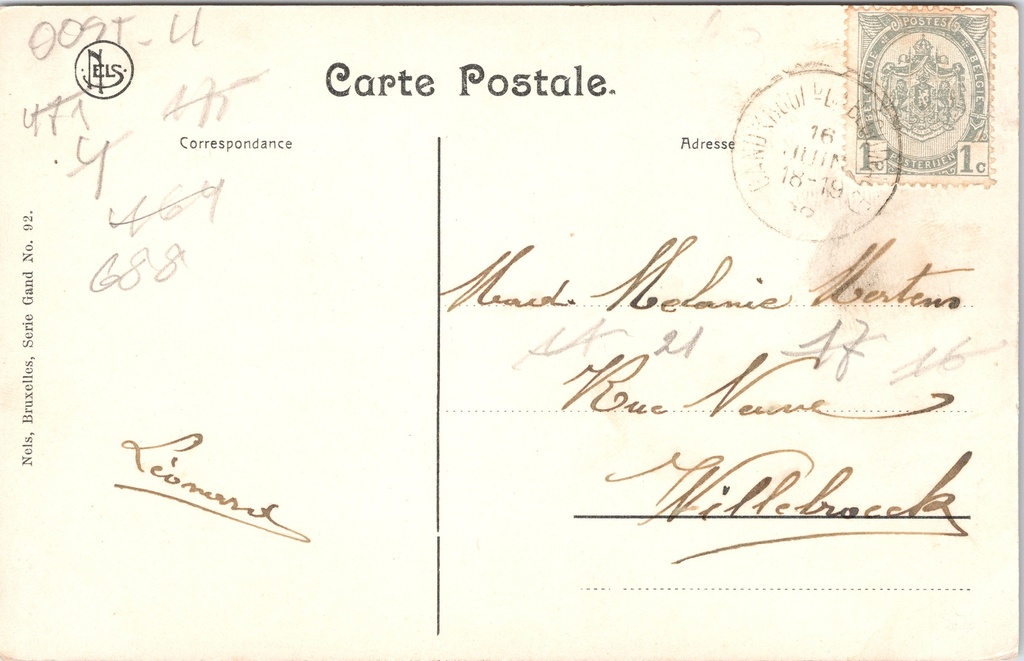 009T-U
NELS
Carte Postale.
POSTES
BELGIQUE
BELGIE
POSTERIJEN
1c 1c
471
175
Correspondance
Adresse
16
JUIN
18-19
4
469
688
Nels, Bruxelles, Serie Gand No. 92.
Mad. Melanie Mertens
21 17 16
Rue Neuve
Léonard
Willebroeck